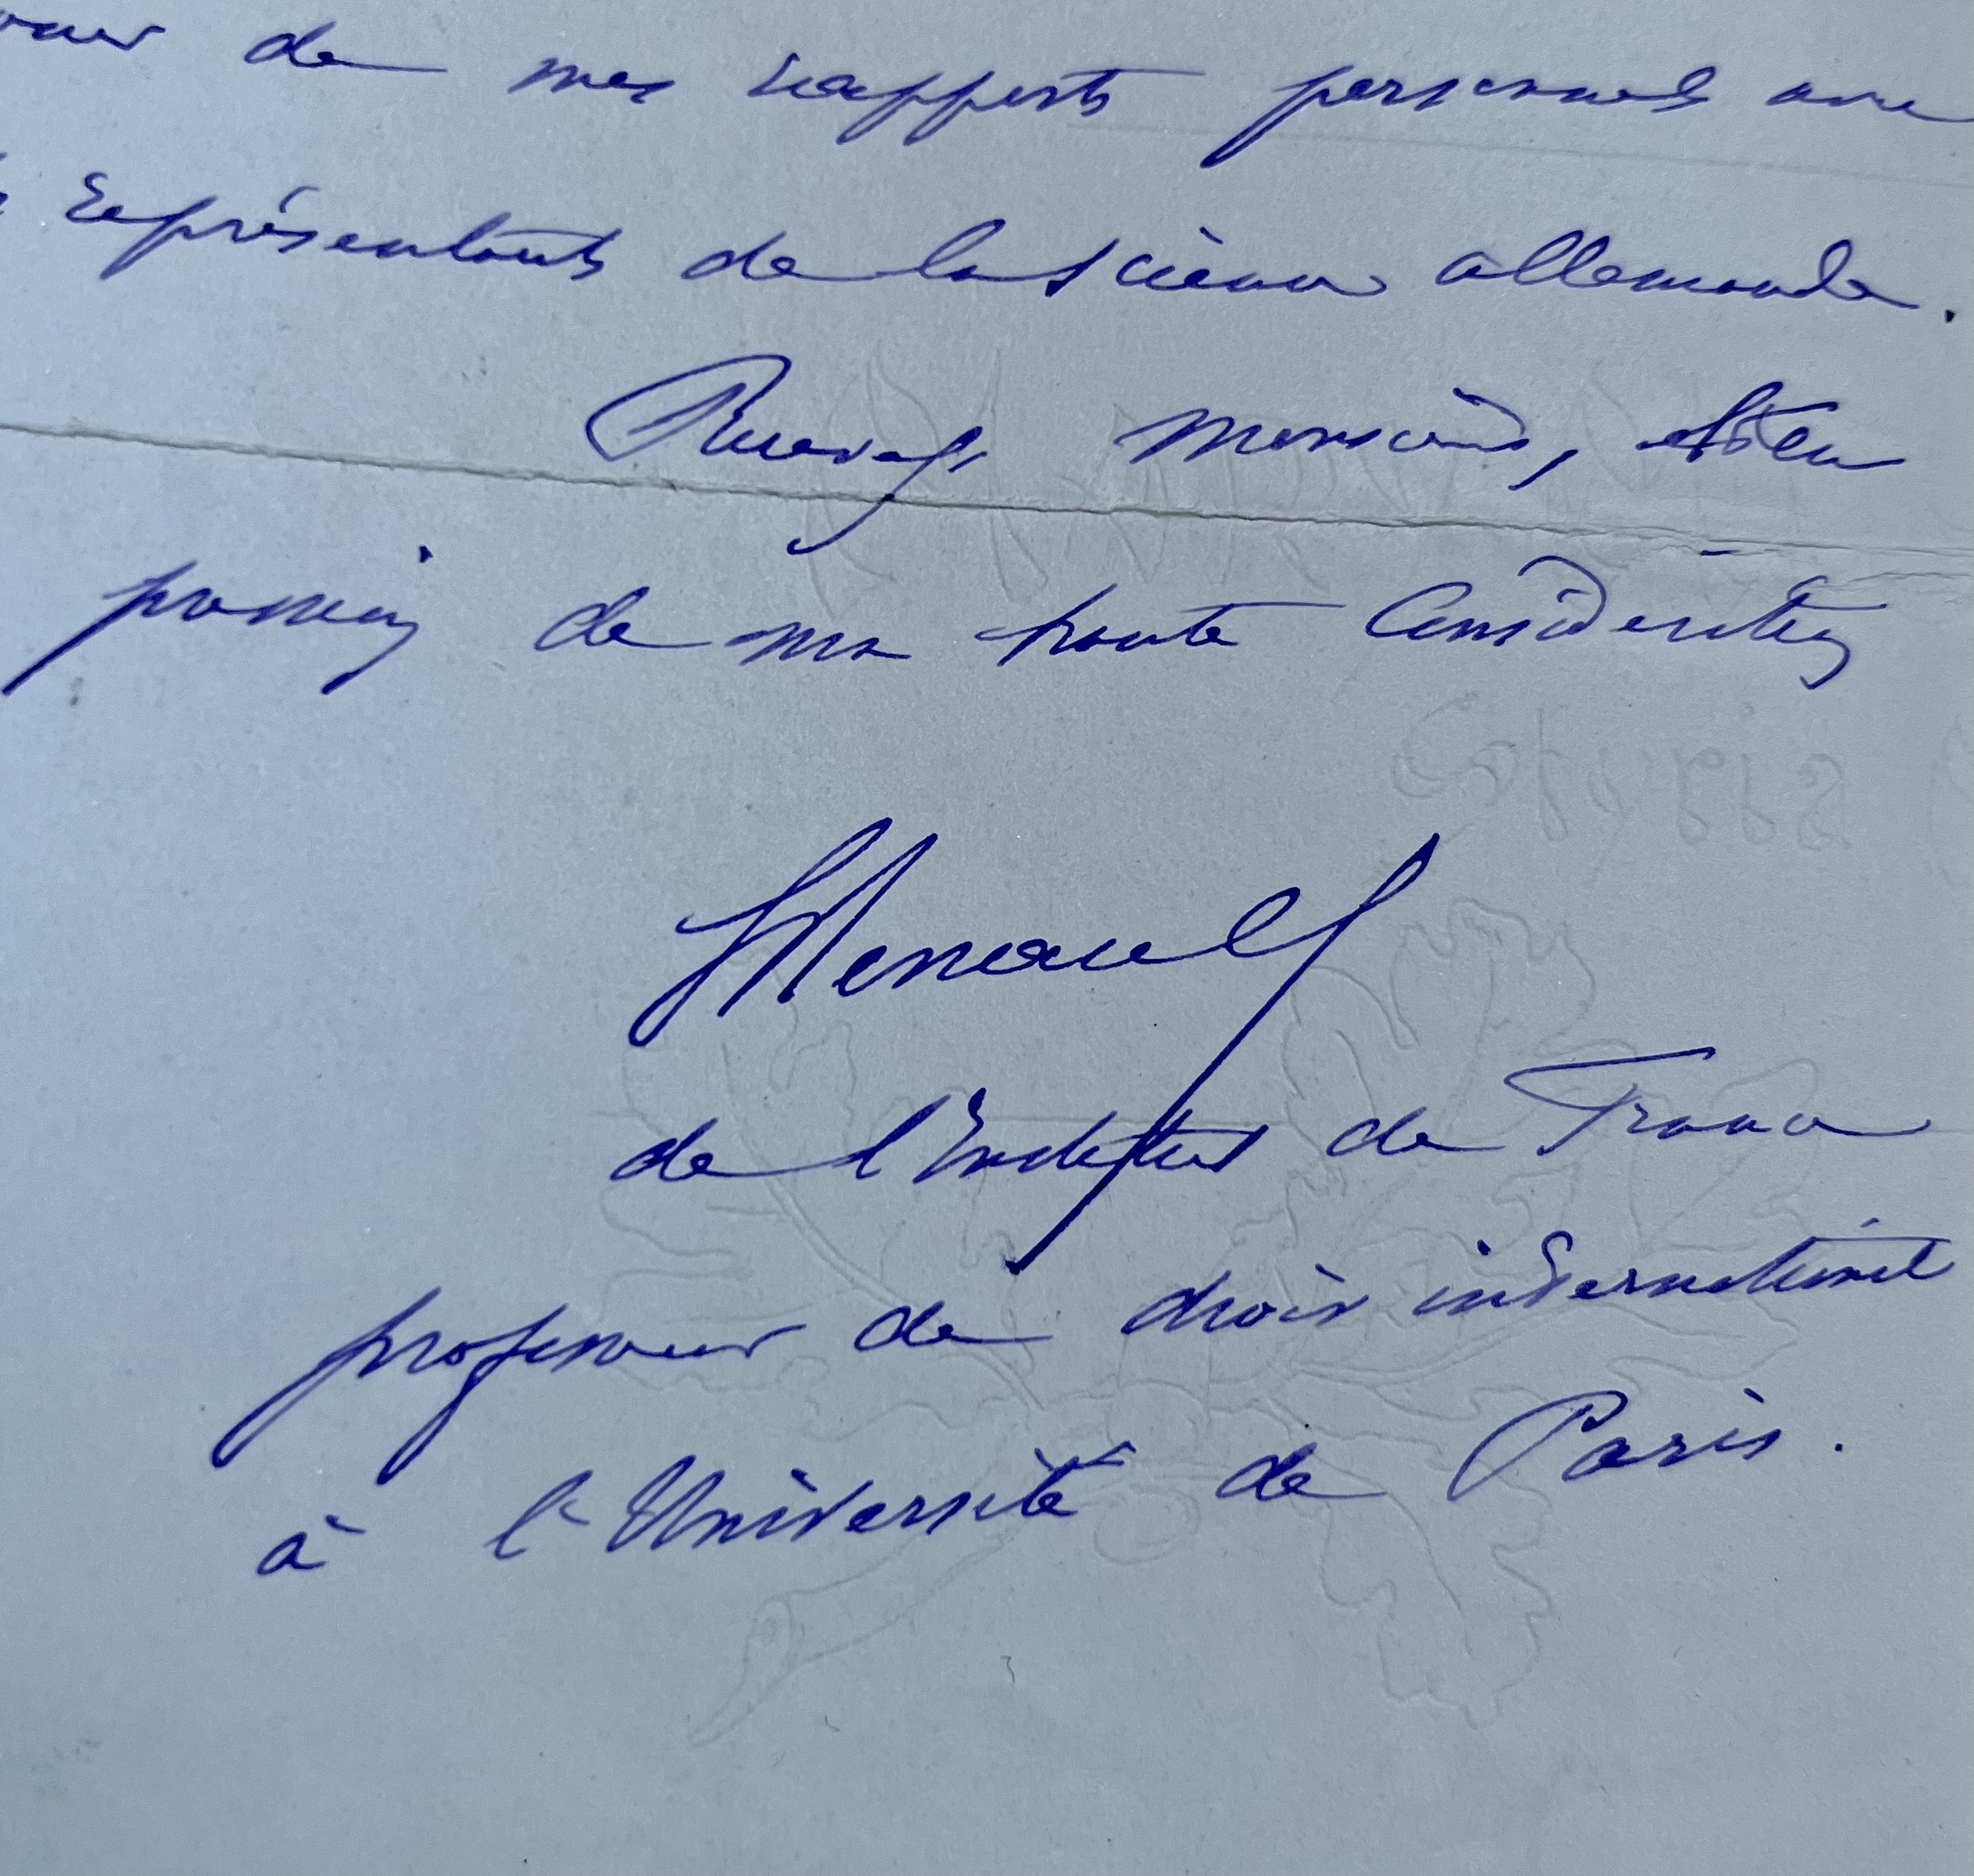 de mes rapports personnels avec
représentants de la science allemande.
Recevez, Monsieur,
de ma haute considération
LRenault
de l'Institut de France
professeur de droit international
à l'Université de Paris.